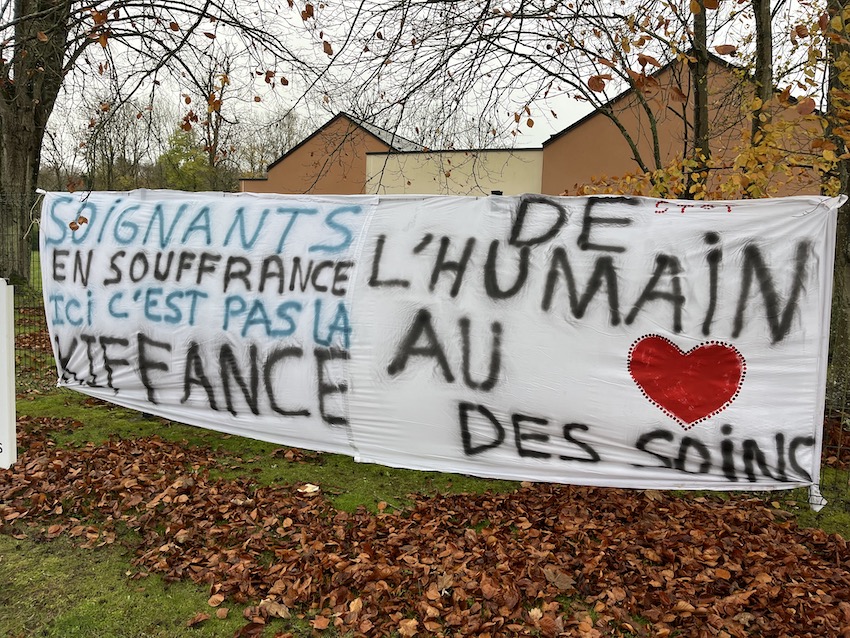 SOIGNANTS
EN SOUFFRANCE
ICI C'EST PAS LA
KIFFANCE
DE
L'HUMAIN
AU
DES SOINS